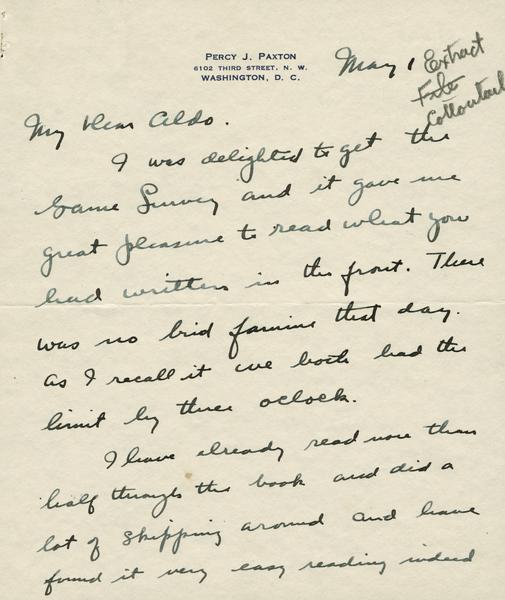 PERCY J. PAXTON
6102 THIRD STREET, N. W.
WASHINGTON, D. C.
May 1
Extract
File
Cottontail
My dear Aldo.
I was delighted to get the
Game Survey and it gave me
great pleasure to read what you
had written in the front. There
was no bird famine that day.
as I recall it we both had the
limit by three oclock.
I have already read more than
half through the book and did a
lot of skipping around and have
found it very easy reading indeed